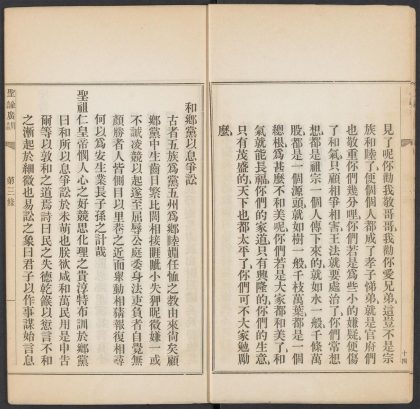 見了呢你勸我敬哥哥我勸你愛兄弟這豈不是宗
族和睦了便個個人都成了孝子悌弟就是官府們
也敬重你們幾分哩你們若是爲些小的嫌疑便傷
了和氣只顧相爭相害王法就要處治了你們常想
想都是祖宗一個人傳下來的就如水一般千條萬
股都是一個源頭就如樹一般千枝萬葉都是一個
總根爲甚麽不和美呢你們若是大家都和美了和
氣就能長福你們的家道只有興隆的你們的生意
只有茂盛的天下也都太平了你們可不大家勉勵
麽
十四
和鄉黨以息爭訟
古者五族爲黨五州爲鄉睦婣任恤之教由來尚矣顧
鄉黨中生齒日繁比閭相接睚眦小失狎昵微嫌一或
不誡凌競以起遂至屈辱公庭委身法吏負者自覺無
顏勝者人皆側目以里巷之近而舉動相猜報復相尋
何以爲安生業長子孫之計哉
聖祖仁皇帝憫人心之好競思化理之貴淳特布訓於鄉黨
曰和所以息爭訟於未萌也朕欲咸和萬民用是申告
爾等以敦和之道焉詩曰民之失德乾餱以愆言不和
之漸起於細微也易訟之象曰君子以作事謀始言息
聖諭廣訓
第三條